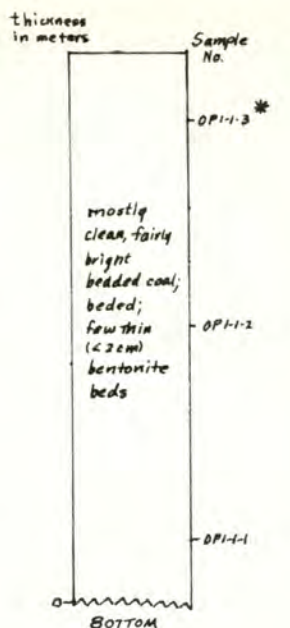 thickness
in meters
Sample
No.
OP1-1-3 *
mostly
clean, fairly
bright
bedded coal;
beded;
few thin
(<2cm)
bentonite
beds
OP1-1-2
OP1-1-1
0
BOTTOM